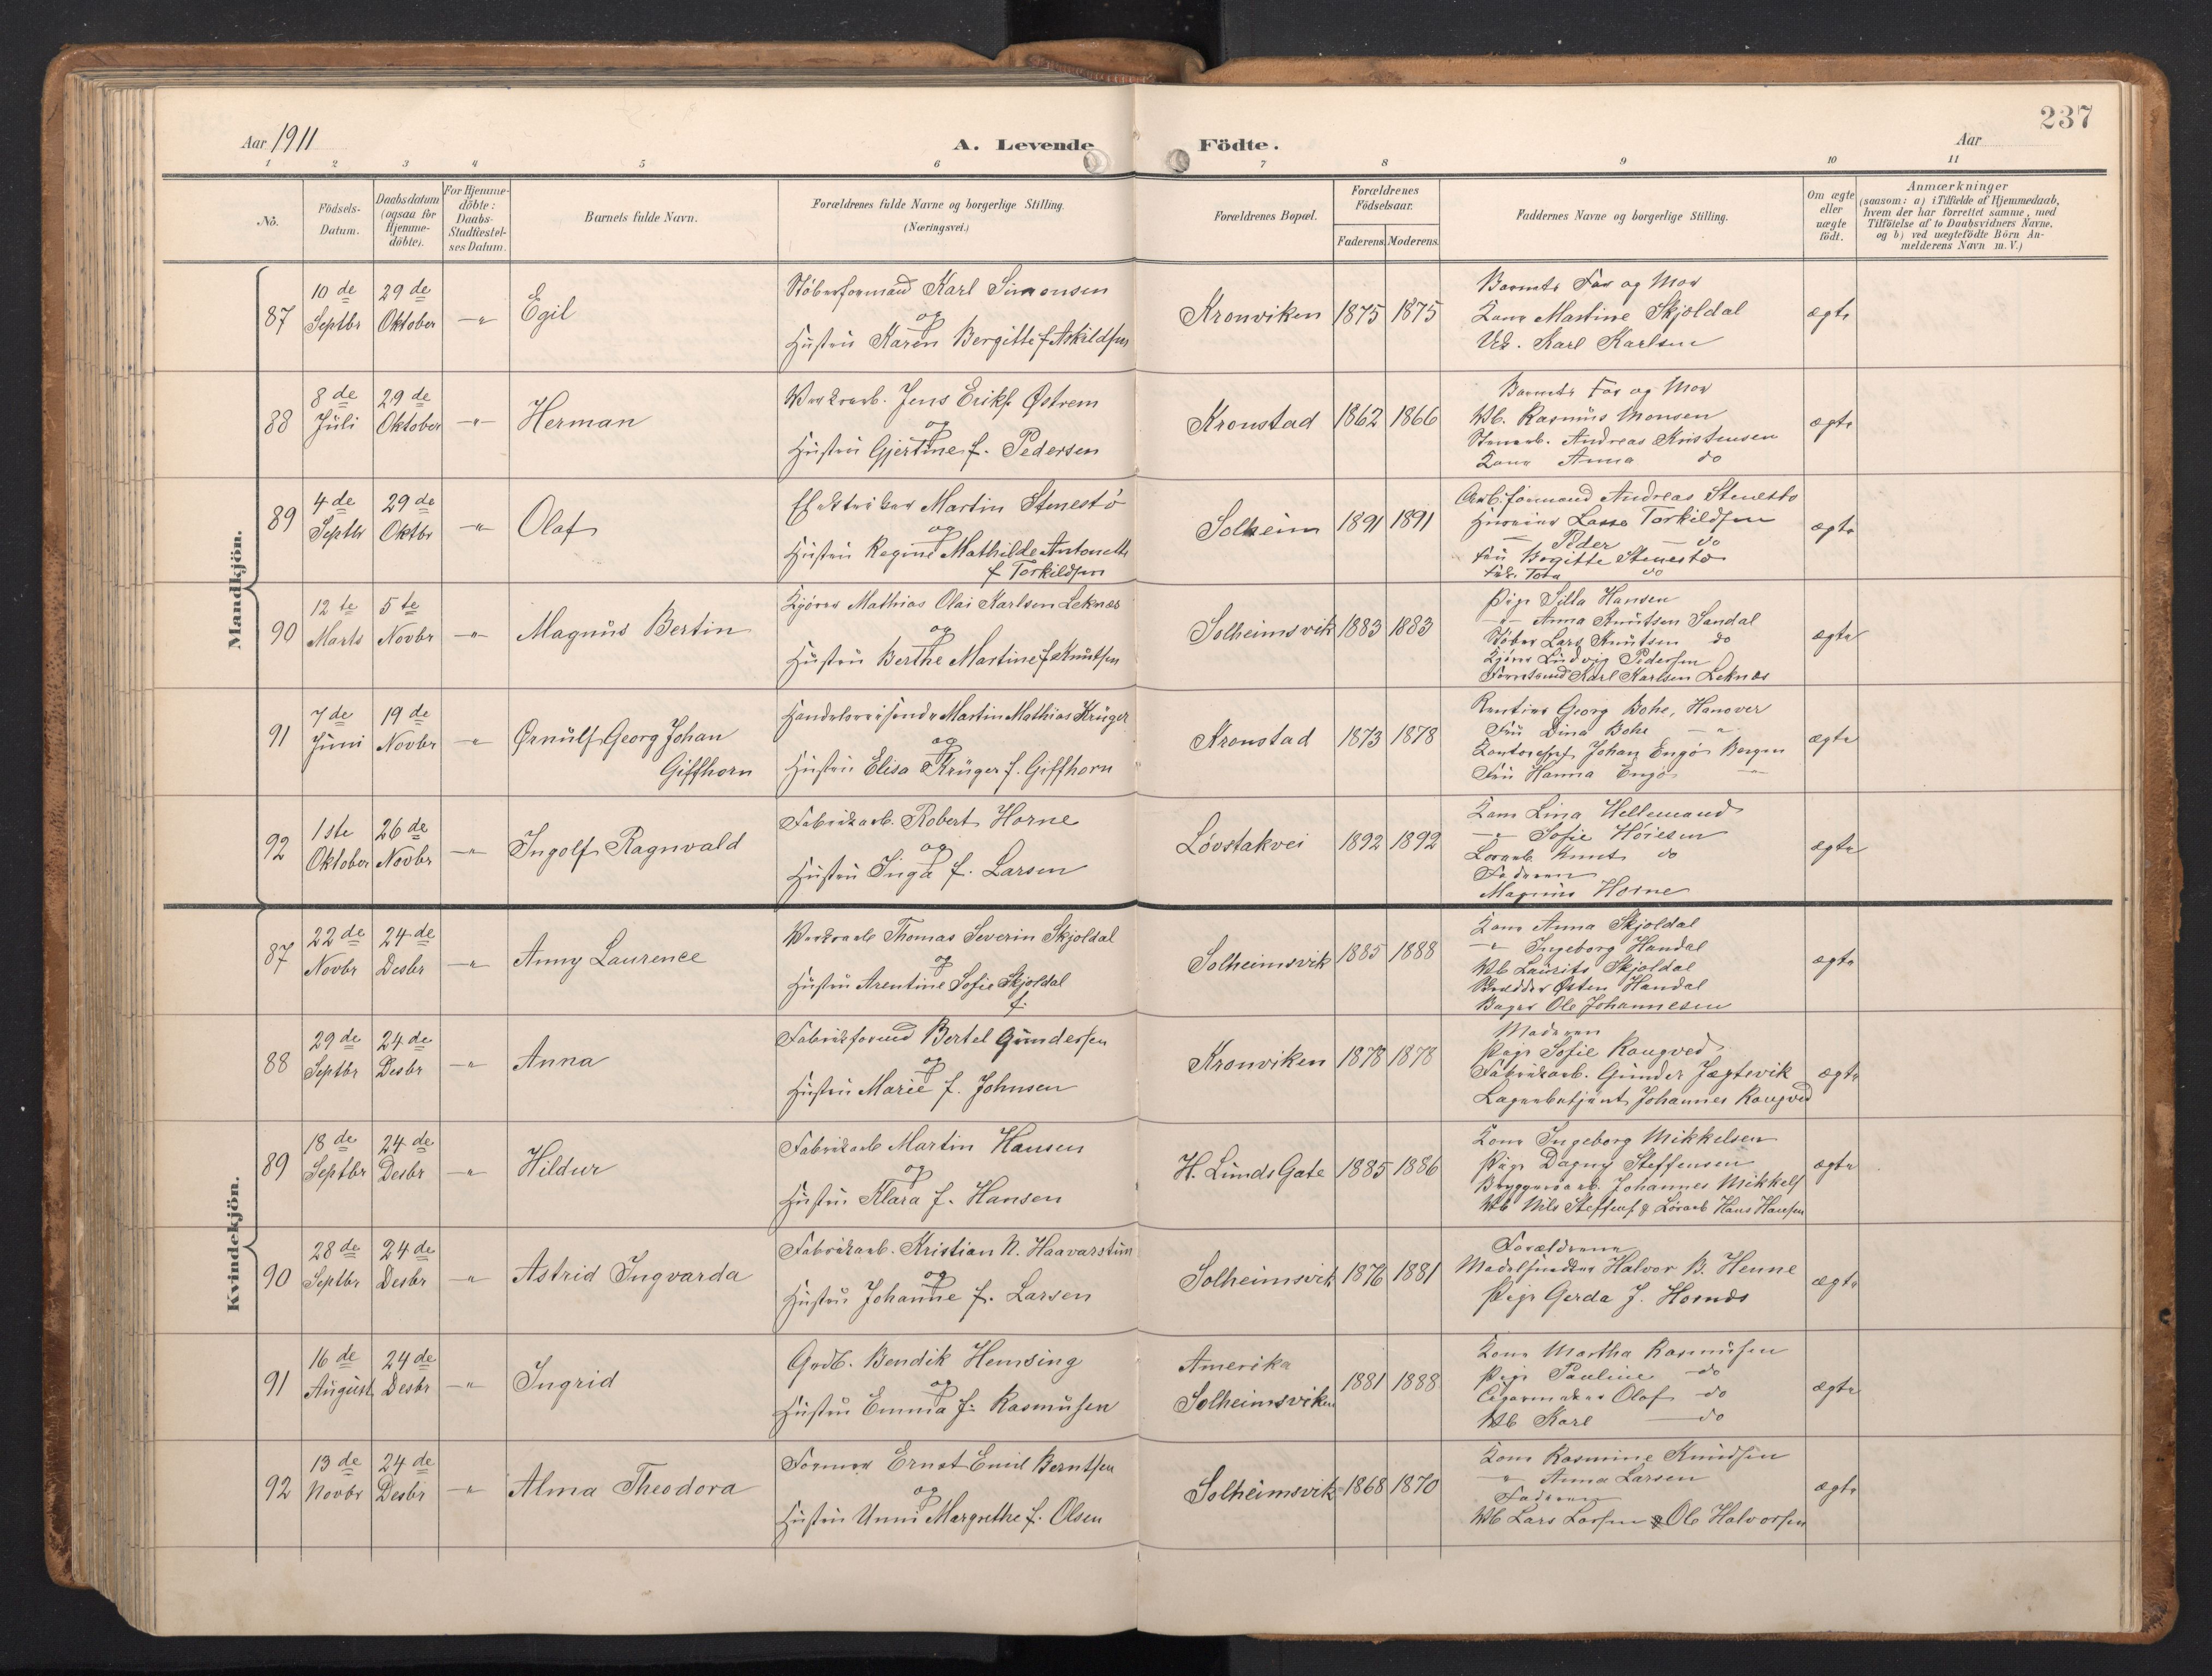 237
Aar 1911
A. Levende Födte.
Aar
1 2 3 4 5 6 7 8 9 10 11
No.
Födsels-Datum.
Daabsdatum (ogsaa för Hjemme-döbte).
For Hjemme-döbte: Daabs-Stadfæstel-ses Datum.
Barnets fulde Navn.
Forældrenes fulde Navne og borgerlige Stilling.
(Næringsvei.)
Forældrenes Bopæl.
Forældrenes Födselsaar.
Faderens. Moderens.
Faddernes Navne og borgerlige Stilling.
Om ægte eller uægte födt.
Anmærkninger
(saasom: a) i Tilfælde af Hjemmedaab, hvem der har forrettet samme, med Tilföielse af to Daabsvidners Navne. og b) ved uægtefödte Börn An-melderens Navn m. V.)
Mandkjön.
87 10de Septbr 29de Oktober -"- Egil
Støberformand Karl Simonsen
og
Hustru Karen Bergitte f. Askildsen
Kronviken 1875 1875
Barnets Far og Mor
Kone Martine Skjoldal
Karl Karlsen
ægte
88 8de Juli 29de Oktober -"- Herman
Verksarb. Jens Eriks. Østrem
og
Hustru Gjertine f. Pedersen
Kronstad 1862 1866
Barnets Far og Mor
Vb. Rasmus Monsen
Stenarb. Andreas Kristensen
Kone Anna do
ægte
89 4de Septbr 29de Oktbr -"- Olaf
Elektriker Martin Stenestø
og
Hustru Regine Mathilde Antonette
f Torkildsen
Solheim 1891 1891
Arb.formand Andreas Stenestø
Lasse Torkildsen
— Peder — do
Fru Bergitte Stenestø
Tora do
ægte
90 12te Marts 5te Novbr -"- Magnus Bertin
Kjører Mathias Olai Karlsen Leknæs
og
Hustru Berthe Martine f Knutsen
Solheimsvik 1883 1883
Pige Silla Hansen
-"- Anna Knutsen Sandal
Støber Lars Knutsen do
Kjører Ludvig Pedersen
Karl Karlsen Leknæs
ægte
91 7de Juni 19de Novbr -"- Ørnulf Georg Johan
Giffhorn
Handelsreisende Martin Mathias Krüger
og
Hustru Elisa Krüger f. Giffhorn
Kronstad 1873 1878
Rentier Georg Bohe, Hanover
Fru Dina Bohe -"-
Kontorchef Johan Engø Bergen
Fru Hanna Engø —
ægte
92 1ste Oktober 26de Novbr -"- Ingolf Ragnvald
Fabrikarb. Robert Horne
og
Hustru Inga f. Larsen
Løvstakvei 1892 1892
Kone Lina Hellemand
-"- Sofie Høiesen
Knut do
Faderen
Magnus Horne
ægte
Kvindekjön.
87 22de Novbr 24de Desbr -"- Anny Laurence
Verksarb Thomas Severin Skjoldal
og
Hustru Arentine Sofie Skjoldal
f.
Solheimsvik 1885 1888
Kone Anna Skjoldal
-"- Ingeborg Handal
Vb Laurits Skjoldal
Østen Handal
Bager Ole Johannesen
ægte
88 29de Septbr 24de Desbr -"- Anna
Fabrikformd Bertel Gundersen
og
Hustru Marie f. Johnsen
Kronviken 1878 1878
Moderen
Pige Sofie Raugved
Fabrikarb. Gunder Jægtevik
Lagerbetjent Johannes Raugved
ægte
89 18de Septbr 24de Desbr -"- Hildur
Fabrikarb Martin Hansen
og
Hustru Klara f. Hansen
H. Lunds Gate 1885 1886
Kone Ingeborg Mikkelsen
Pige Dagny Steffensen
Bryggeriarb. Johannes Mikkels
Vb Nils Steffens & Hans Hansen
ægte
90 28de Septbr 24de Desbr -"- Astrid Ingvarda
Fabrikarb. Kristian N. Haavarstun
og
Hustru Johanne f. Larsen
Solheimsvik 1876 1881
Forældrene
Modelsnedker Halvor B. Henne
Pige Gerda J.
ægte
91 16de August 24de Desbr -"- Ingrid
Bendik Hemsing
og
Hustru Emma f. Rasmusen
Amerika
Solheimsviken
1881 1888
Kone Martha Rasmusen
Pige Pauline do
Cigarmaker Olaf do
Vb Karl — do
ægte
92 13de Novbr 24de Desbr -"- Alma Theodora
Former Ernst Emil Berntsen
og
Hustru Unni Margrethe f. Olsen
Solheimsvik 1868 1870
Kone Rasmine Knudsen
-"- Anna Larsen
Faderen
Vb Lars Larsen & Ole Halvorsen
ægte